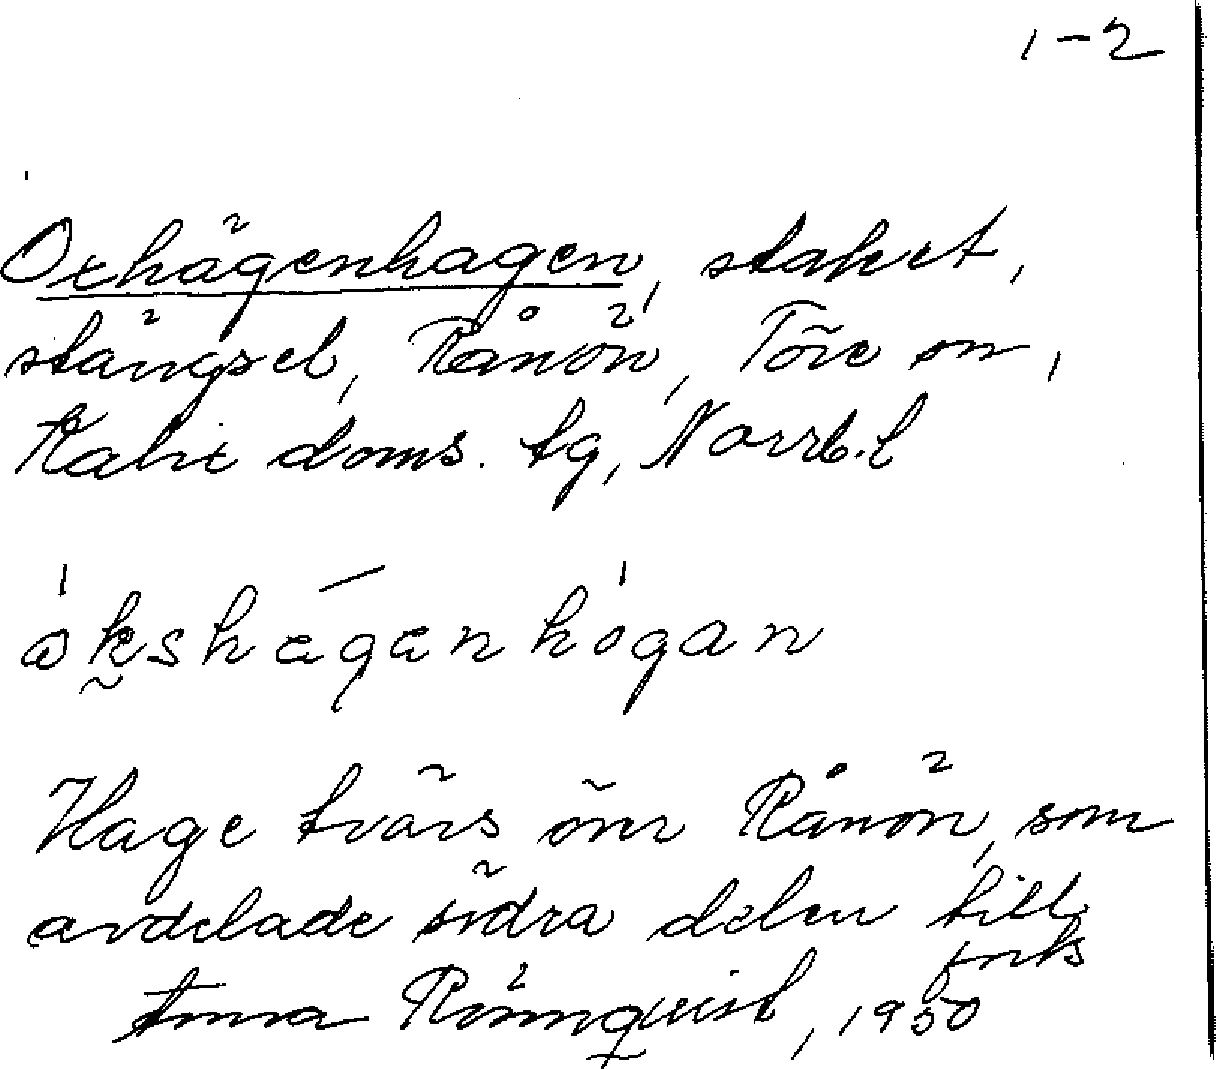 1-2
Oxhägenhagen, staket,
stängsel, Rånön, Töre sn,
Kalix doms. tg, Norrb. l
åkshägänhogan
Hage tvärs över Rånön, som
avdelade södra delen till
forts
Anna Rönnqvist, 1950